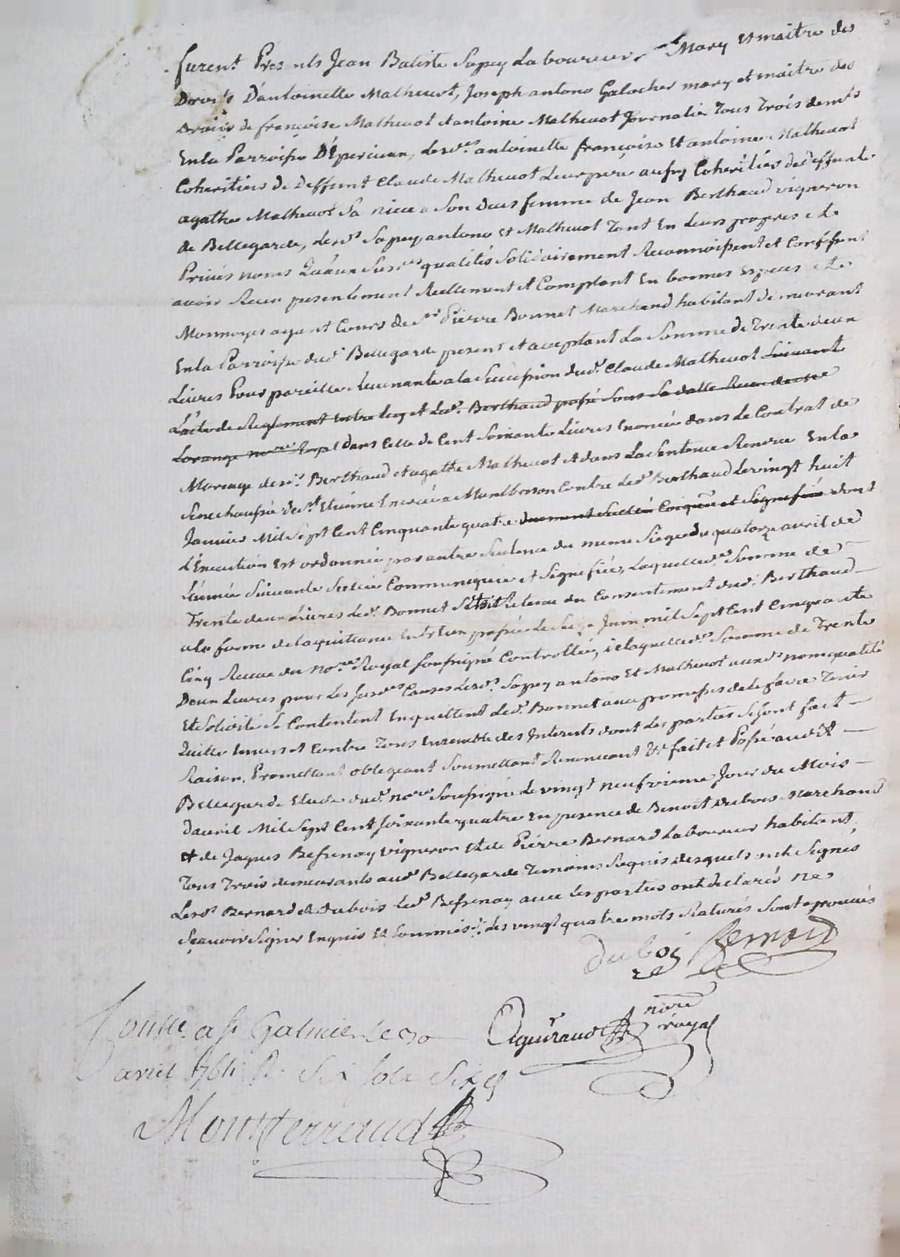 furent Presents Jean Batiste Sapey Laboureur Mary et maitre des
Droits Dantoinette Matheuot, Joseph antono Galocher mary et maitre des
Droits de francoise Matheuot et antoine Matheuot Journalie Tous Trois dem.ts
En la Parroisse D'Epericieu, Lesd.es antoinette francoise Et antoine Matheuot
Coheritiers de Deffunt Claude Matheuot Leur pere aussy Coheritiés de deffunte
agathe Matheuot Sa niece a Son deces femme de Jean Berthaud vigneron
de Bellegarde, Lesd.s Sapey, antono Et Matheuot Tant En Leurs propres et
Privés noms Qu'aux Susd.es qualités Solidairement Reconnoissent et Confessent
avoir Receu presentement Reellement et Comptant En bonnes Especes et
Monnoyes ayant Cours de S.r Pierre Bonnet Marchand habitant demeurant
En la Parroisse dud. Bellegarde present et acceptant La Somme de Trente deux
Livres Pour pareille Reuenante a la Succession dud. Claude Matheuot Suivant
L'acte de Reglement Entre luy et Led. Berthaud passé Sous Sa datte Receu
Lorange no.re Royal dans Celle de Cent Soixante Livres Enoncée dans Le Contrat de
Mariage desd. Berthaud et agathe Matheuot et dans La Sentence Rendue En la
Senechaussée de Montbrison Contre Led. Berthaud Le vingt huit
Janvier Mil Sept Cent Cinquante quatre Duement Scellée et Signifiée dont
L'Execution Est ordonnée par autre Sentence du meme Siege du quatorze avril de
L'année Suivante Scellée Communiquée et Signifiée, Laquelle d. Somme de
Trente deux Livres Led. Bonnet S'etoit Retenu du Consentement dud. Berthaud
a la forme de la quittance passée Le Juin mil Sept Cent Cinquante
Cinq Receue du No.re Royal Soussigné Controllée, de laquelle d. Somme de Trente
Deux Livres pour Les Susd.es Causes Lesd. Sapey antono Et Matheuot auxd. nom qualité
Et Solidité Se Contentent En quittent Led. Bonnet aux promesses de le faire Tenir
Quitte Envers et Contre Tous Ensemble des Interets dont Les parties Se Sont fait
Raison, Promettant obligeant Soumettant Renoncant &c fait et Passé audit
Bellegarde Etude dud. no.re Soussigné Le vingt neufvieme Jour du Mois
d'avril Mil Sept Cent Soixante quatre En presence de Benoit Dubois Marchand
et de Jaques Bessenay vigneron Et de Pierre Bernard Laboureur habitant
Tous Trois demeurants aud. Bellegarde Temoins Requis desquels ont Signés
Lesd. Bernard et Dubois Led. Bessenay avec Les parties ont declarés Ne
Sçavoir Signer Enquis Et Sommés. Les vingt quatre mots Raturés Sont aprouvés
duboy Bernard
Aguiraud no.re royal
Conlle a St Galmier le 30
avril 1764 R. Six Sols Six d
Montterraud